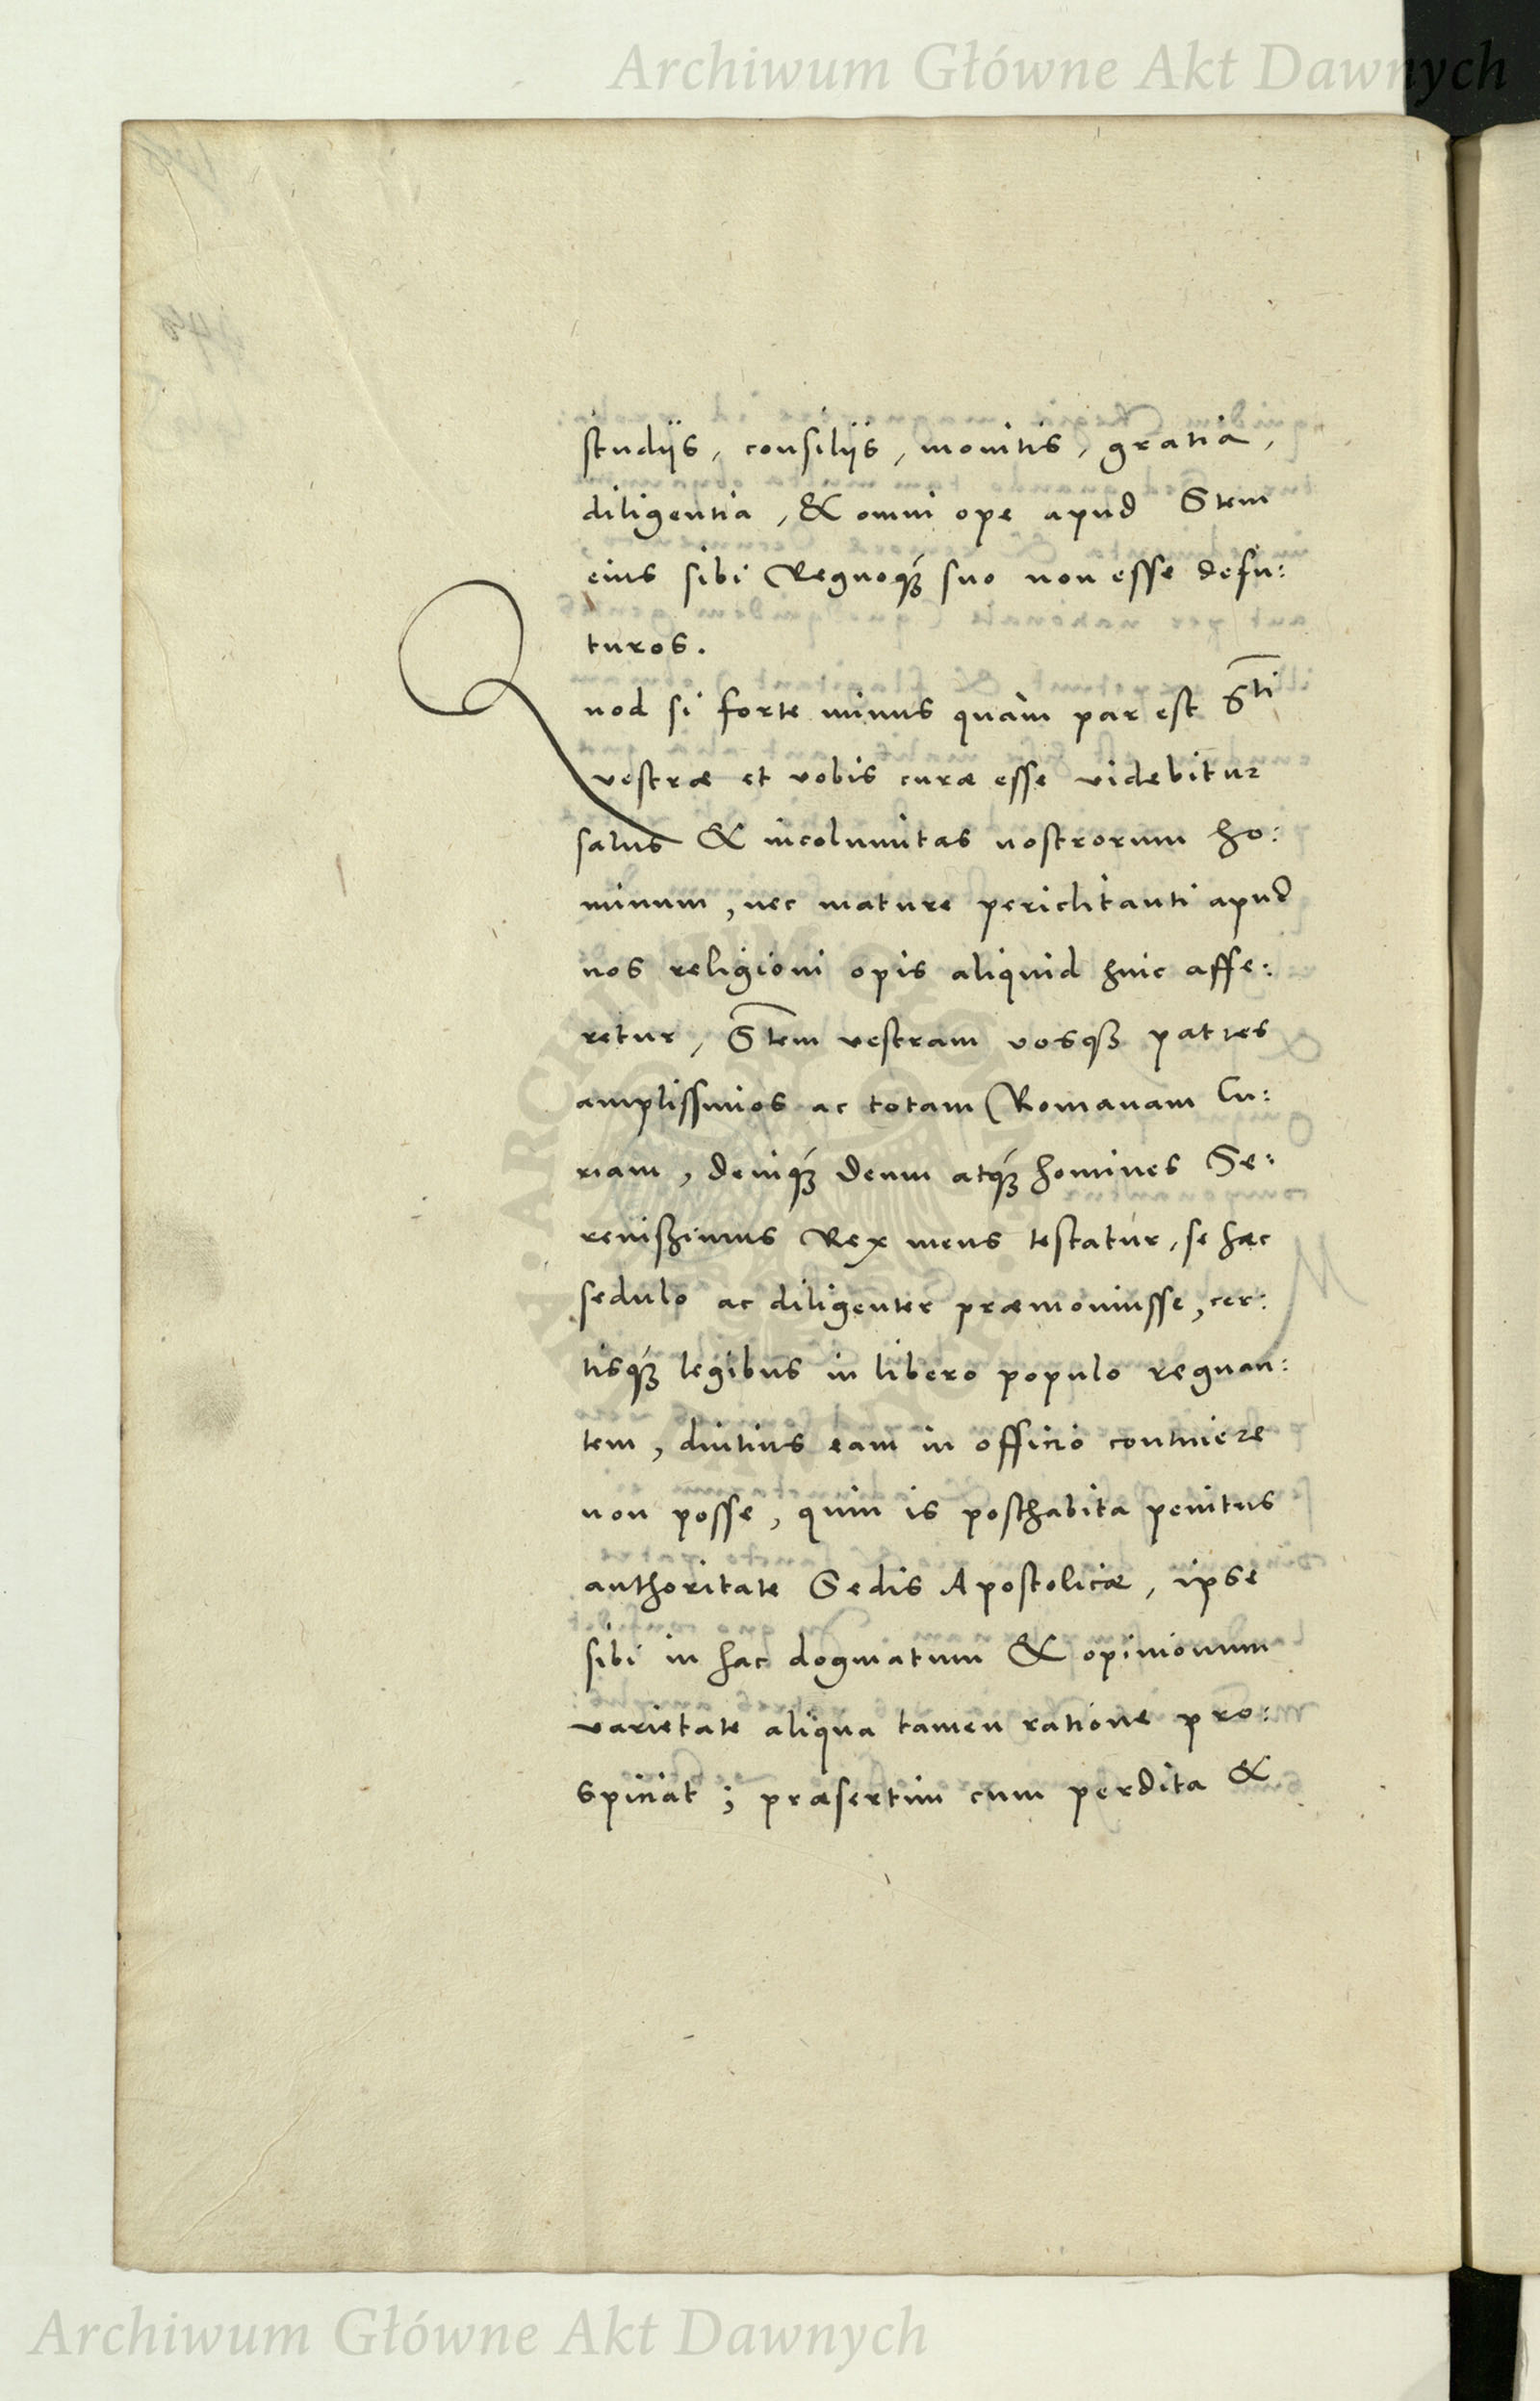 Archiwum Główne Akt Dawnych
studijs, consilijs, monitis, gratia,
diligentia, & omni ope apud Stem
eius sibi Regnoq́ꝫ suo non esse defu:
turos.
Quod si forte minus quàm par est Sti
vestræ et vobis curæ esse videbitur
salus & incolumitas nostrorum ho:
minum, nec mature periclitanti apud
nos religioni opis aliquid huic affe:
retur, Stem vestram vosqꝫ patres
amplissimos ac totam Romanam Cu:
riam, deniq́ꝫ deum atq́ꝫ homines Se:
renissimus Rex meus testatur, se hæc
sedulo ac diligenter præmonuisse, cer:
tisq́ꝫ legibus in libero populo regnan:
tem, diutius eam in officio continere
non posse, quin is posthabita penitus
authoritate Sedis Apostolicæ, ipse
sibi in hac dogmatum & opinionum
varietate aliqua tamen ratione pro:
spiciat; præsertim cum perdita &
Archiwum Główne Akt Dawnych